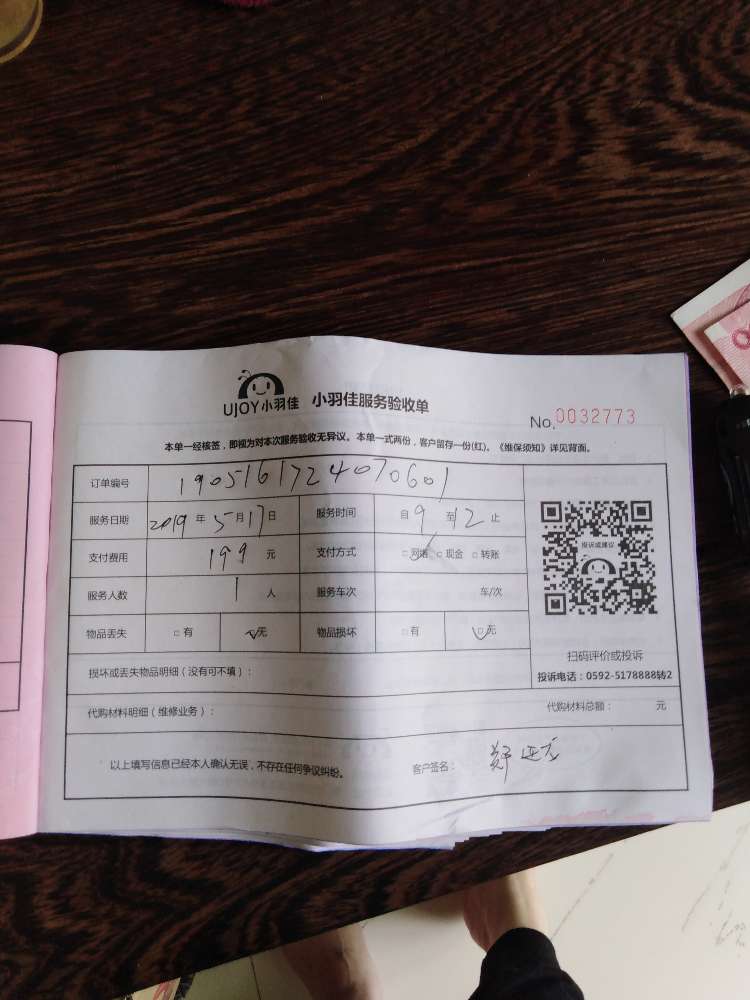 UJOY小羽佳 小羽佳服务验收单
No.0032773
本单一经核签，即视为对本次服务验收无异议。本单一式两份，客户留存一份(红)。《维保须知》详见背面。
订单编号 1905161724070601
服务日期 2019年5月17日 服务时间 自9至12止
支付费用 199元 支付方式 □网络 □现金 □转账
服务人数 1人 服务车次 车/次
物品丢失 □有 □无 物品损坏 □有 □无
投诉或建议
扫码评价或投诉
投诉电话：0592-5178888转2
损坏或丢失物品明细（没有可不填）：
代购材料明细（维修业务）： 代购材料总额： 元
以上填写信息已经本人确认无误，不存在任何争议纠纷。 客户签名： 郑